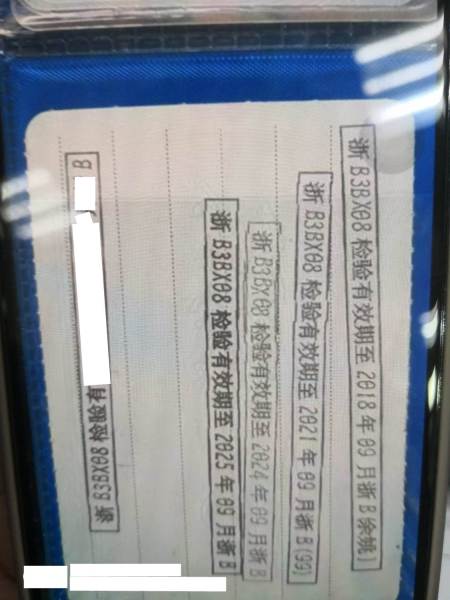 浙 B3BX08 检验有效期至 2018 年 09 月浙 B 余姚)
浙 B3BX08 检验有效期至 2021 年 09 月浙 B(99)
浙 B3BX08 检验有效期至 2024 年 09 月浙 B
浙 B3BX08 检验有效期至 2025 年 09 月浙 B
浙 B3BX08 检验有 B